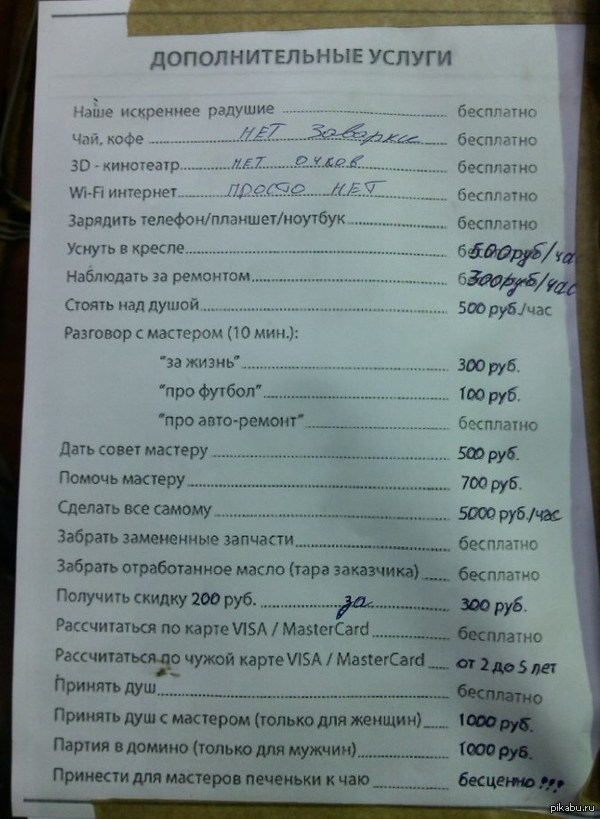 ДОПОЛНИТЕЛЬНЫЕ УСЛУГИ
Наше искреннее радушие бесплатно
Чай, кофе нет заварки бесплатно
3D - кинотеатр нет очков бесплатно
Wi-Fi интернет просто нет бесплатно
Зарядить телефон/планшет/ноутбук бесплатно
Уснуть в кресле 500руб/час
Наблюдать за ремонтом 300руб/час
Стоять над душой 500 руб./час
Разговор с мастером (10 мин.):
"за жизнь" 300 руб.
"про футбол" 100 руб.
"про авто-ремонт" бесплатно
Дать совет мастеру 500 руб.
Помочь мастеру 700 руб.
Сделать все самому 5000 руб./час
Забрать замененные запчасти бесплатно
Забрать отработанное масло (тара заказчика) бесплатно
Получить скидку 200 руб. за 300 руб.
Рассчитаться по карте VISA / MasterCard бесплатно
Рассчитаться по чужой карте VISA / MasterCard от 2 до 5 лет
Принять душ бесплатно
Принять душ с мастером (только для женщин) 1000 руб.
Партия в домино (только для мужчин) 1000 руб.
Принести для мастеров печеньки к чаю бесценно!!!
pikabu.ru